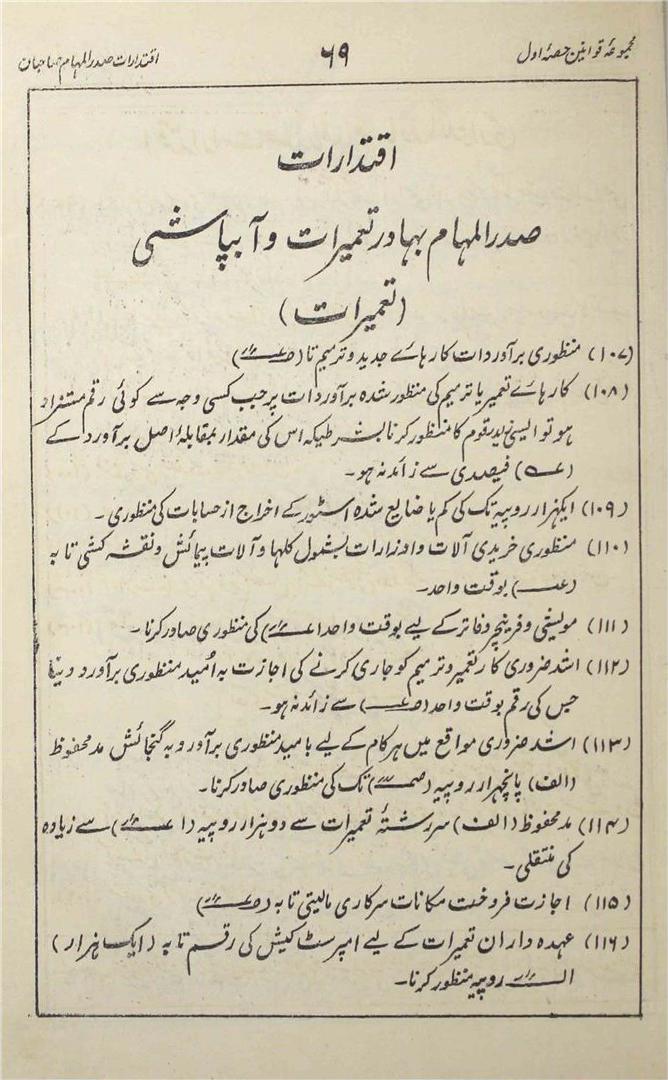 مجموعۂ قوانین حصۂ اول
۶۹
اقتدارات صدر المہام صاحبان
اقتدارات
صدر المہام بہادر تعمیرات و آبپاشی
(تعمیرات)
(۱۰۷) منظوری برآوردات کارہاے جدید و ترمیم تا
(۱۰۸) کارہاے تعمیر یا ترمیم کی منظور شدہ برآوردات پر جب کسی وجہ سے کوئی رقم مستزاد
ہو تو ایسی مزید رقوم کا منظور کرنا بشرطیکہ اس کی مقدار بمقابلۂ اصل برآورد کے
فیصدی سے زائد نہ ہو۔
(۱۰۹) ایکہزار روپیہ تک کی کم یا ضایع شدہ اسٹور کے اخراج از حسابات کی منظوری۔
(۱۱۰) منظوری خریدی آلات و اوزارات بشمول کلہا و آلات پیمائش و نقشہ کشی تا بہ
بوقت واحد۔
(۱۱۱) مویشی و فرنیچر دفاتر کے لیے بوقت واحد کی منظوری صادر کرنا۔
(۱۱۲) اشد ضروری کار تعمیر و ترمیم کو جاری کرنے کی اجازت بہ اُمید منظوری برآورد دینا
جس کی رقم بوقت واحد سے زائد نہ ہو۔
(۱۱۳) اشد ضروری مواقع میں ہر کام کے لیے بامید منظوری برآورد بہ گنجائش مد محفوظ
(الف) پانچہزار روپیہ تک کی منظوری صادر کرنا۔
(۱۱۴) مد محفوظ (الف) سررشتۂ تعمیرات سے دو ہزار روپیہ سے زیادہ
کی منتقلی۔
(۱۱۵) اجازت فروخت مکانات سرکاری مالیتی تا بہ
(۱۱۶) عہدہ داران تعمیرات کے لیے امپرسٹ کیش کی رقم تا بہ (ایک ہزار)
روپیہ منظور کرنا۔